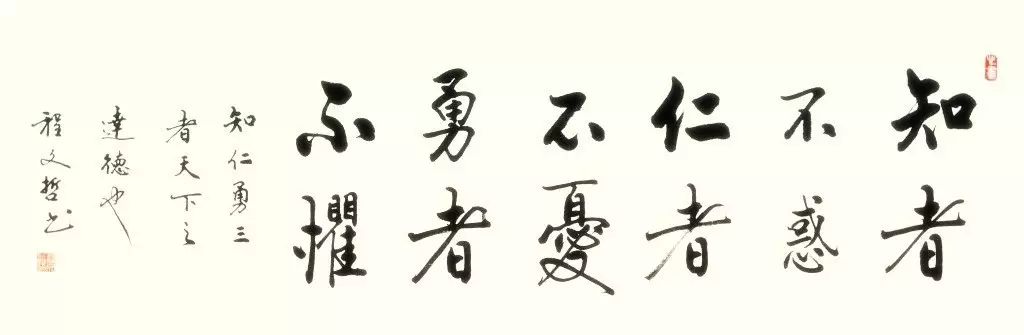 知者
不惑
仁者
不憂
勇者
不懼
知仁勇三
者天下之
達德也
程文哲书